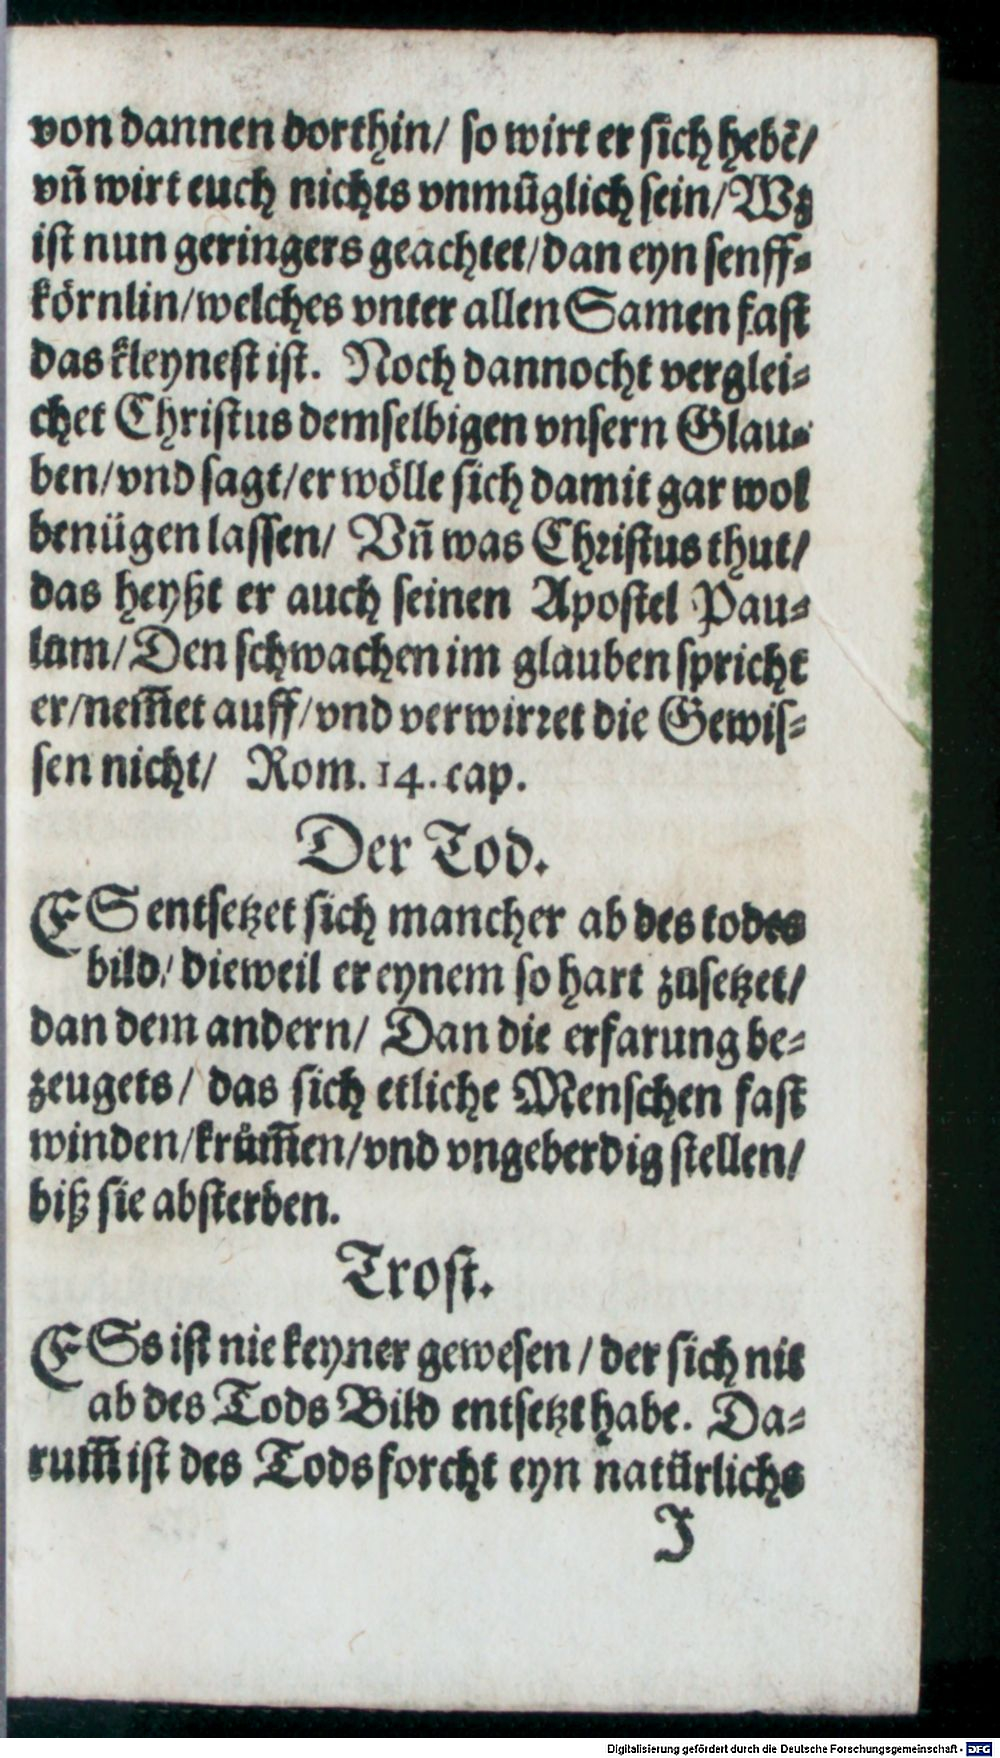 von dannen dorthin/ so wirt er sich hebē/
vn̄ wirt euch nichts vnmüglich sein/ Wz
ist nun geringers geachtet/ dan eyn senff⸗
körnlin/ welches vnter allen Samen fast
das kleynest ist. Noch dannocht verglei⸗
chet Christus demselbigen vnsern Glau⸗
ben/ vnd sagt/ er wölle sich damit gar wol
benügen lassen/ Vn̄ was Christus thut/
das heyßt er auch seinen Apostel Pau⸗
lum/ Den schwachen im glauben spricht
er/ nem̄et auff/ vnd verwirret die Gewis⸗
sen nicht/ Rom. 14. cap.
Der Tod.
ES entsetzet sich mancher ab des todes
bild/ dieweil er eynem so hart zůsetzet/
dan dem andern/ Dan die erfarung be⸗
zeugets/ das sich etliche Menschen fast
winden/ krům̄en/ vnd vngeberdig stellen/
biß sie absterben.
Trost.
ESs ist nie keyner gewesen/ der sich nit
ab des Tods Bild entsetzt habe. Da⸗
rum̄ ist des Tods forcht eyn natürlichs
J
Digitalisierung gefördert durch die Deutsche Forschungsgemeinschaft - DFG